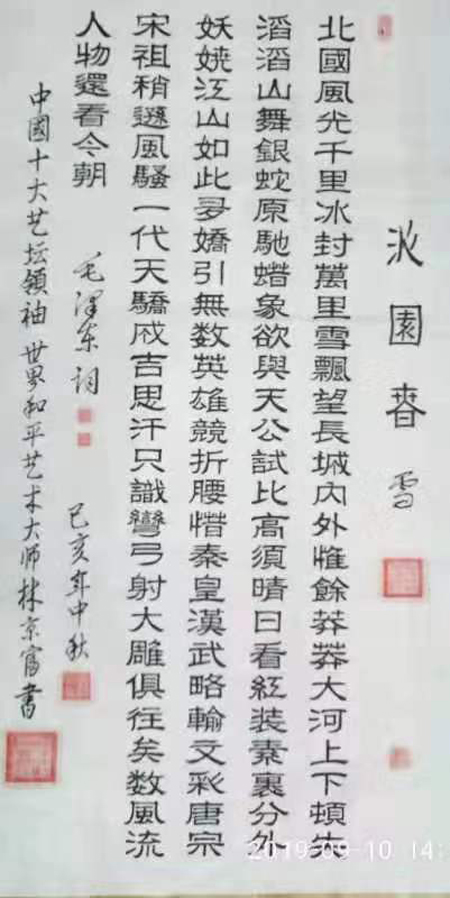 沁園春 雪
北國風光千里冰封萬里雪飄望長城內外惟餘莽莽大河上下頓失
滔滔山舞銀蛇原馳蜡象欲與天公試比高須晴日看紅装素裹分外
妖嬈江山如此多嬌引無数英雄競折腰惜秦皇漢武略輸文彩唐宗
宋祖稍遜風騷一代天驕成吉思汗只識彎弓射大雕俱往矣数風流
人物還看今朝
毛澤东词
己亥年中秋
中國十大艺坛領袖 世界和平艺术大师林京富書
2019-09-10 14: